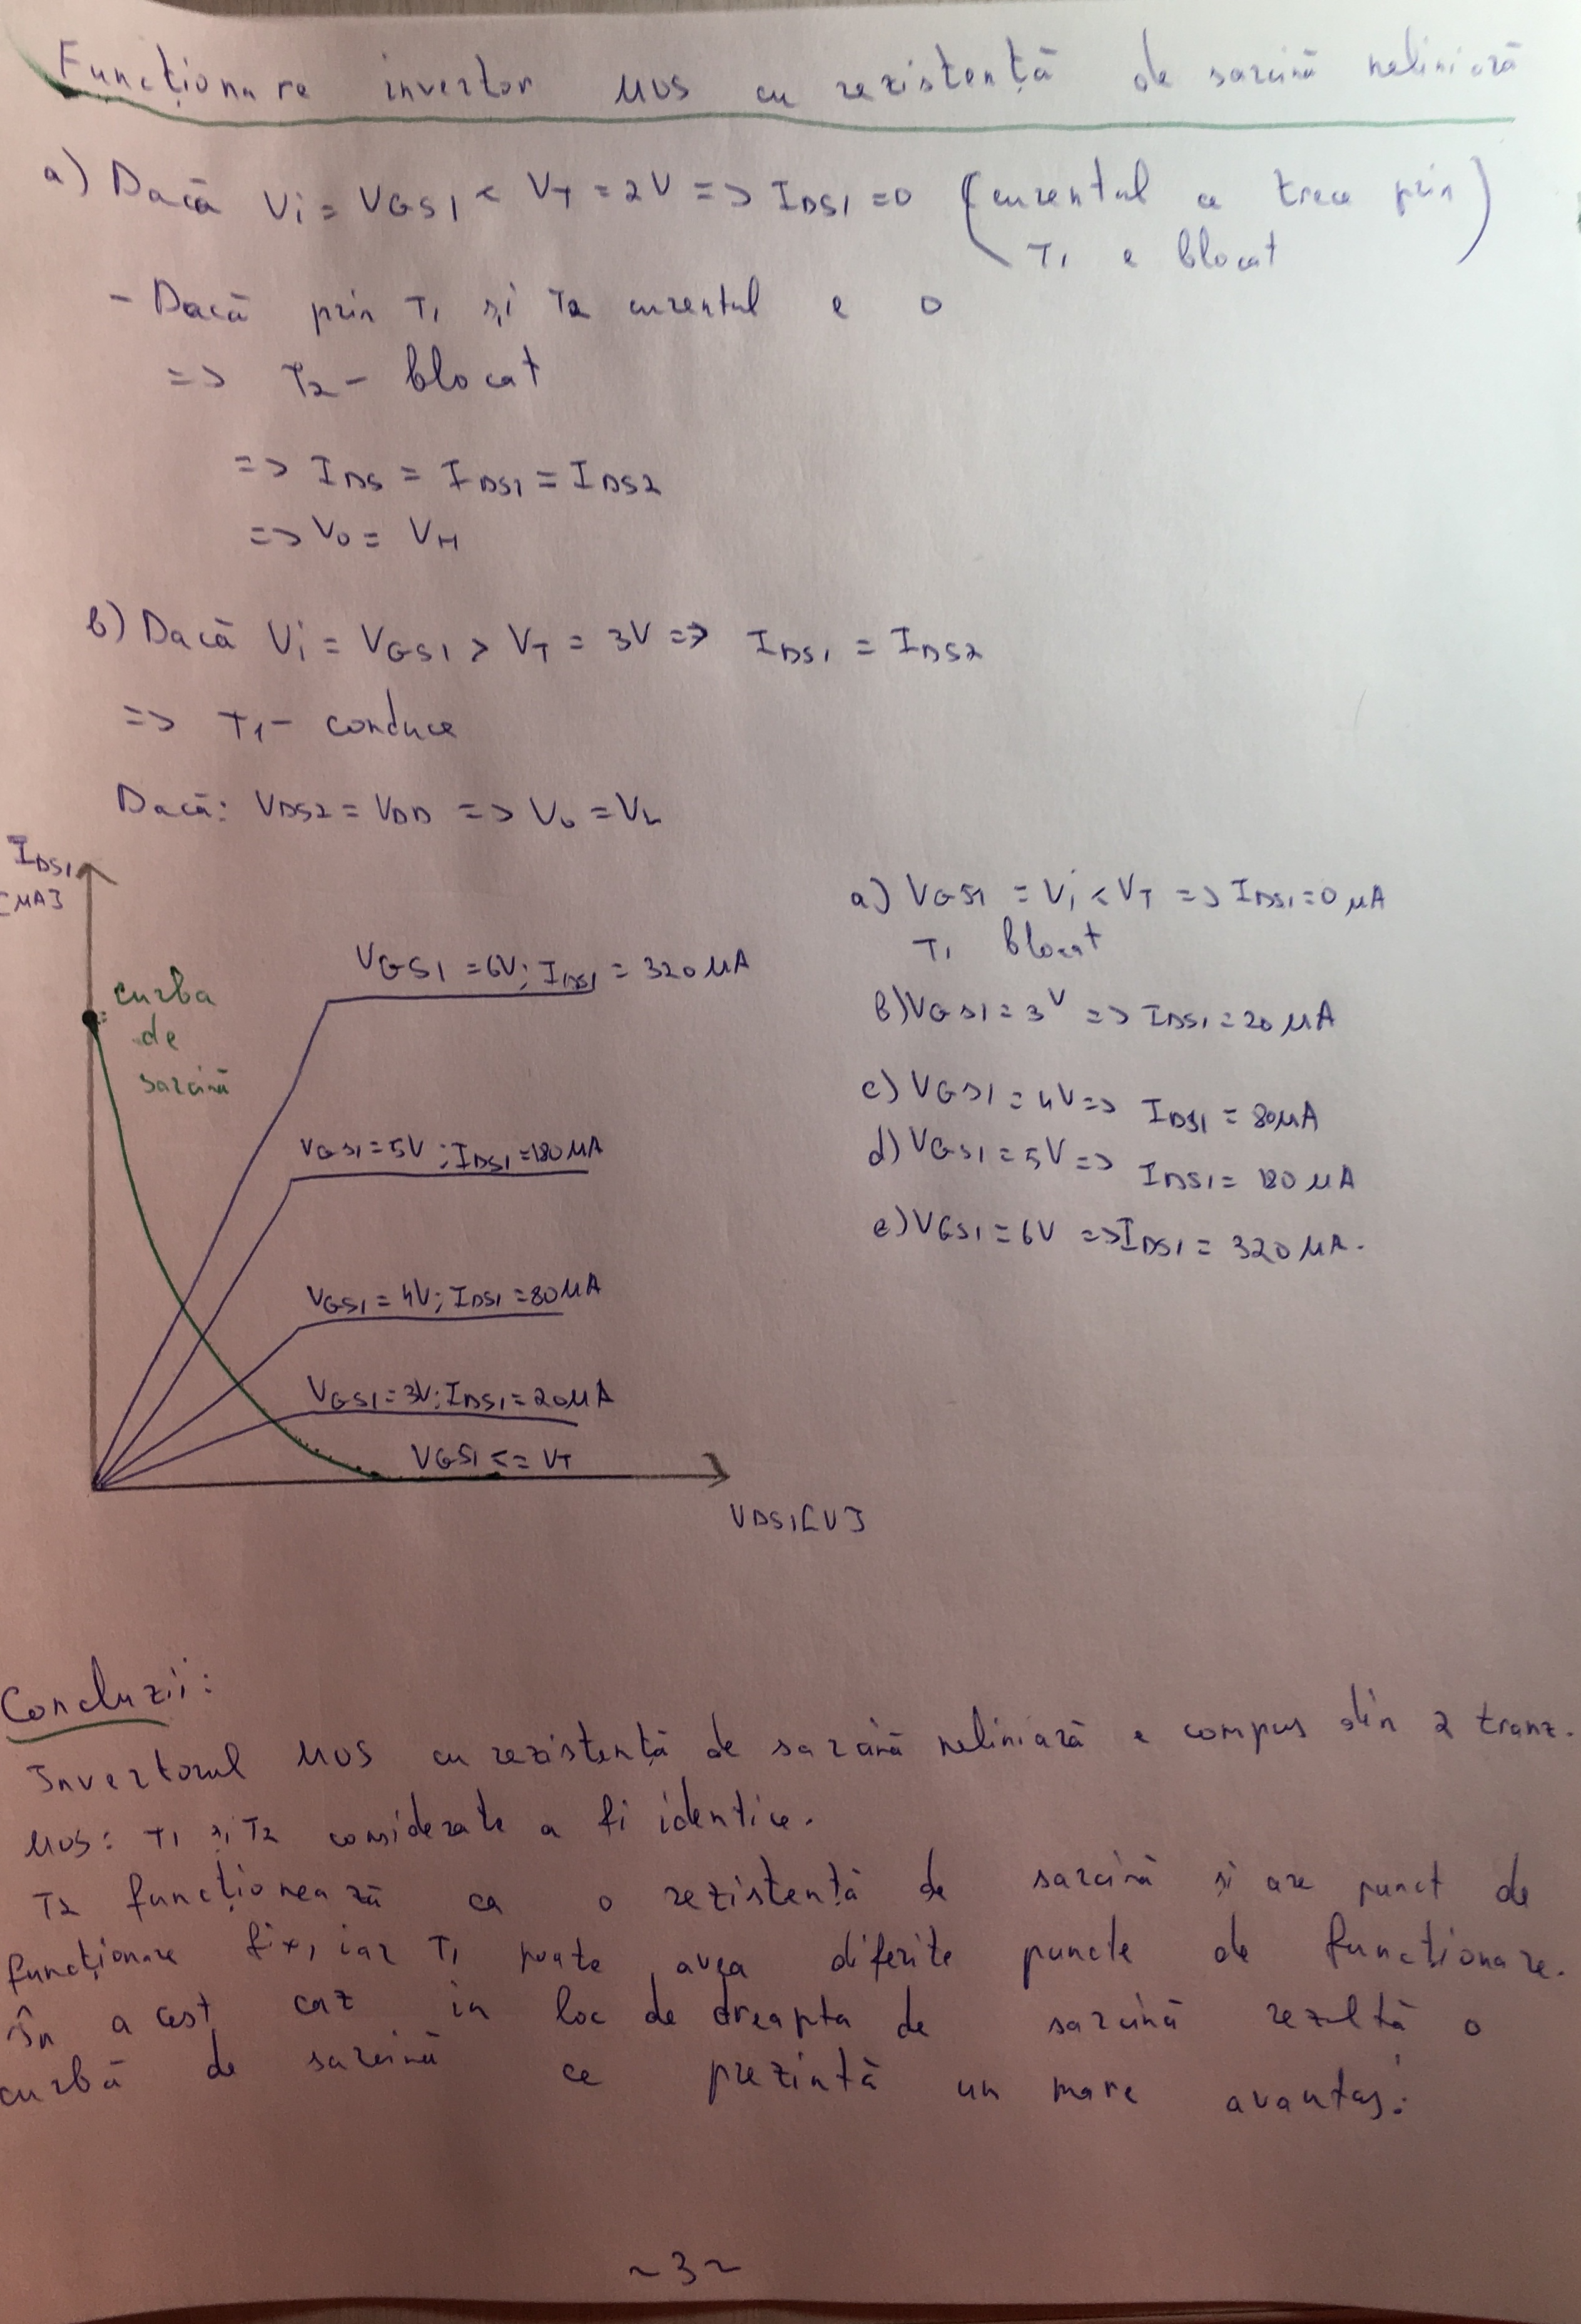 Funcționare invertor MOS cu rezistență de sarcină neliniară
a) Dacă Vi = VGS1 < VT = 2V => IDS1 = 0 (curentul ce trece prin
T1 e blocat)
- Dacă prin T1 și T2 curentul e 0
=> T2 - blocat
=> IDS = IDS1 = IDS2
=> V0 = VH
b) Dacă Vi = VGS1 > VT = 3V => IDS1 = IDS2
=> T1 - conduce
Dacă: VDS2 = VDD => V0 = VL
IDS1
[µA]
curba
de
sarcină
VGS1 = 6V; IDS1 = 320 µA
VGS1 = 5V; IDS1 = 180 µA
VGS1 = 4V; IDS1 = 80 µA
VGS1 = 3V; IDS1 = 20 µA
VGS1 <= VT
VDS1 [V]
a) VGS1 = Vi < VT => IDS1 = 0 µA
T1 blocat
b) VGS1 = 3V => IDS1 = 20 µA
c) VGS1 = 4V => IDS1 = 80 µA
d) VGS1 = 5V => IDS1 = 180 µA
e) VGS1 = 6V => IDS1 = 320 µA.
Concluzii:
Invertorul MOS cu rezistență de sarcină neliniază e compus din 2 tranz.
MOS: T1 și T2 considerate a fi identice.
T2 funcționează ca o rezistență de sarcină și are punct de
funcționare fix, iar T1 poate avea diferite puncte de funcționare.
În acest caz in loc de dreapta de sarcină rezultă o
curbă de sarcină ce prezintă un mare avantaj:
~3~